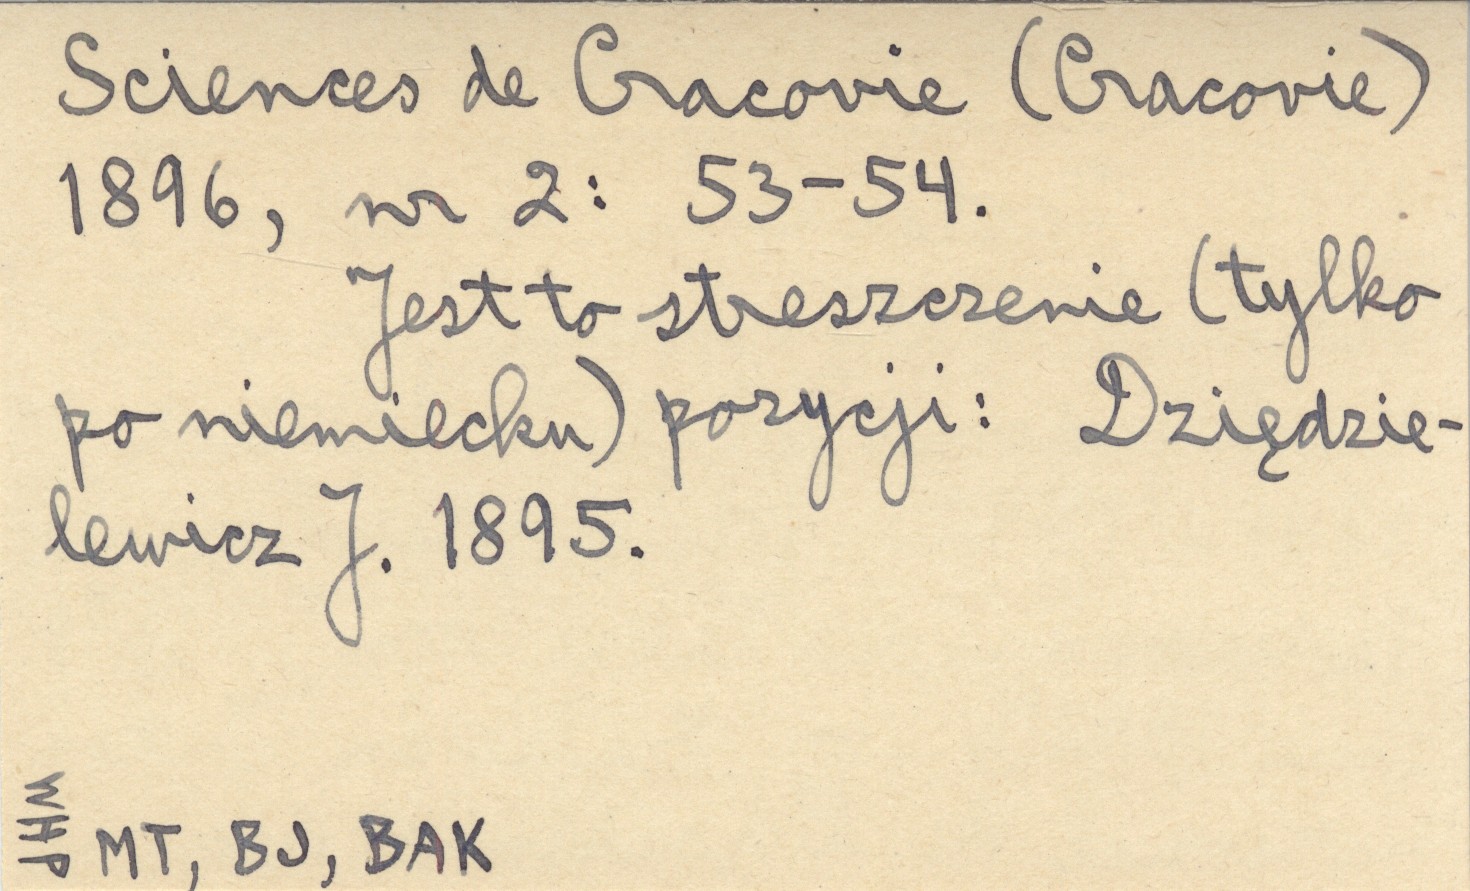 Sciences de Cracovie (Cracovie)
1896, nr 2: 53-54.
Jest to streszczenie (tylko
po niemiecku) pozycji: Dziędzie-
lewicz J. 1895.
WHP
MT, BJ, BAK